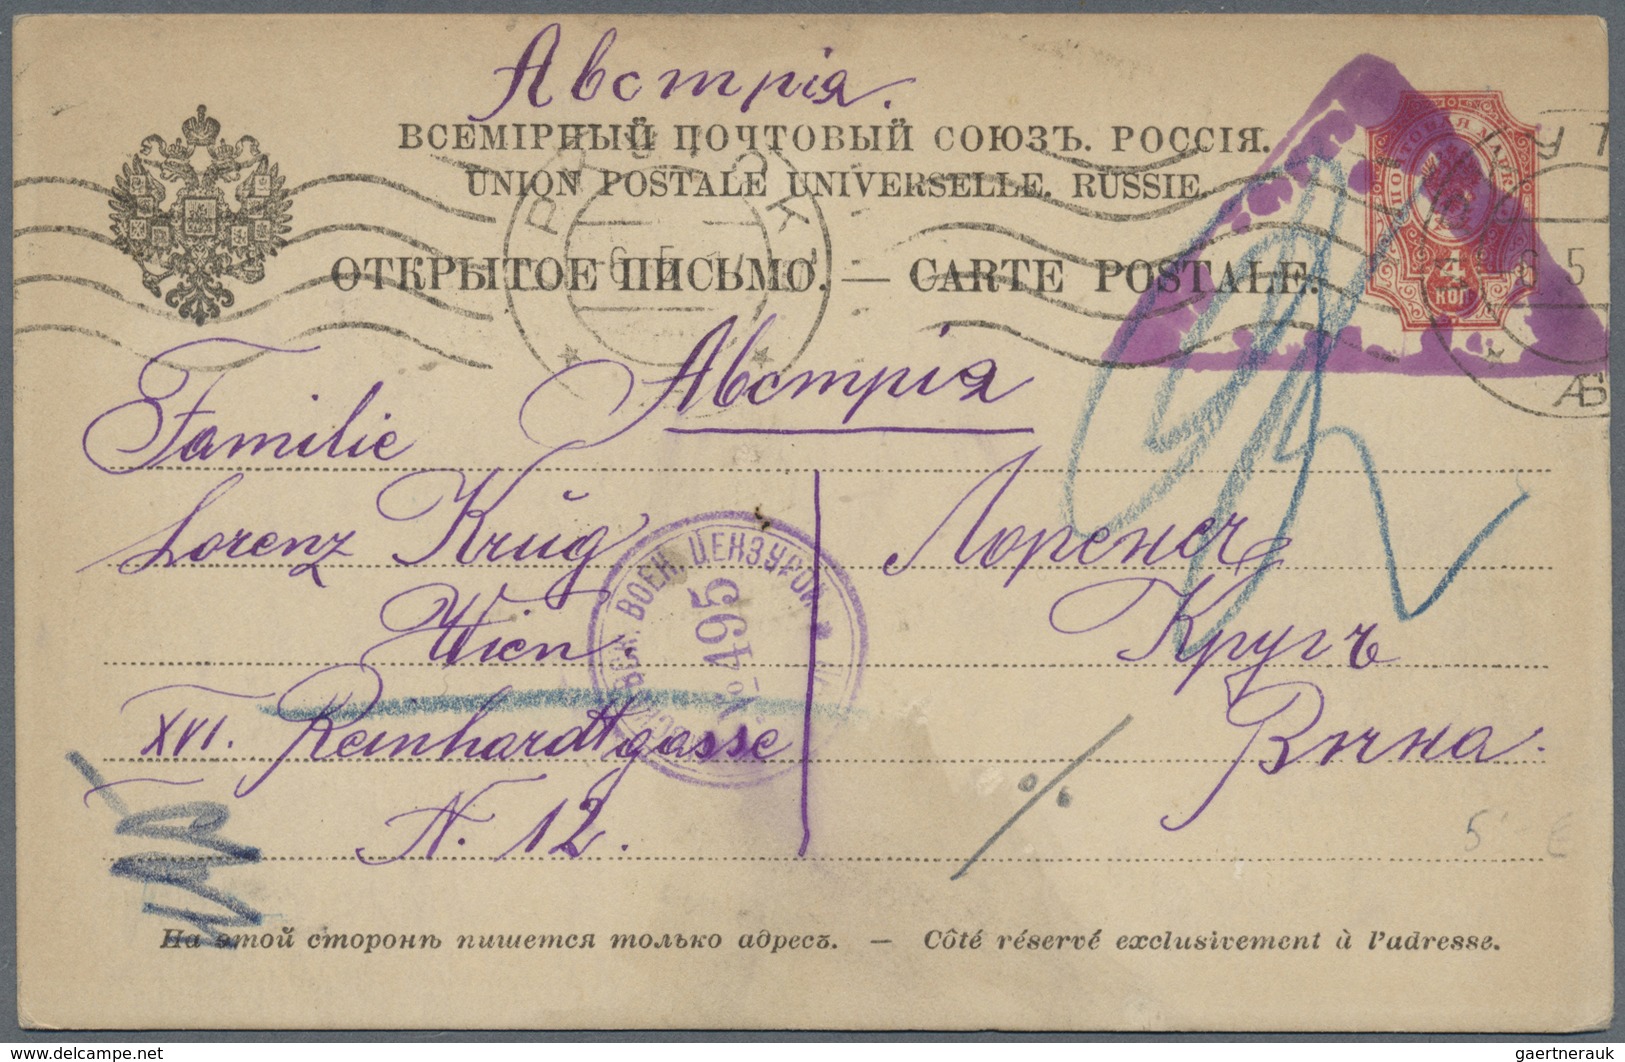 Австрія.
ВСЕМІРНЫЙ ПОЧТОВЫЙ СОЮЗЪ. РОССІЯ.
UNION POSTALE UNIVERSELLE. RUSSIE.
ОТКРЫТОЕ ПИСЬМО. — CARTE POSTALE.
ПОЧТОВАЯ МАРКА
4
КОП
6 5
6 5
Австрія
Familie
Lorenz Krüg
Wien
XVI. Reinhardtgasse
N. 12.
Лоренсъ
Кругъ
Вѣна.
ВОЕН. ЦЕНЗУРОЙ *
№ 195
%
5 €
На этой сторонѣ пишется только адресъ. — Côté réservé exclusivement à l'adresse.
gaertnerauk @ www.delcampe.net
gaertnerauk